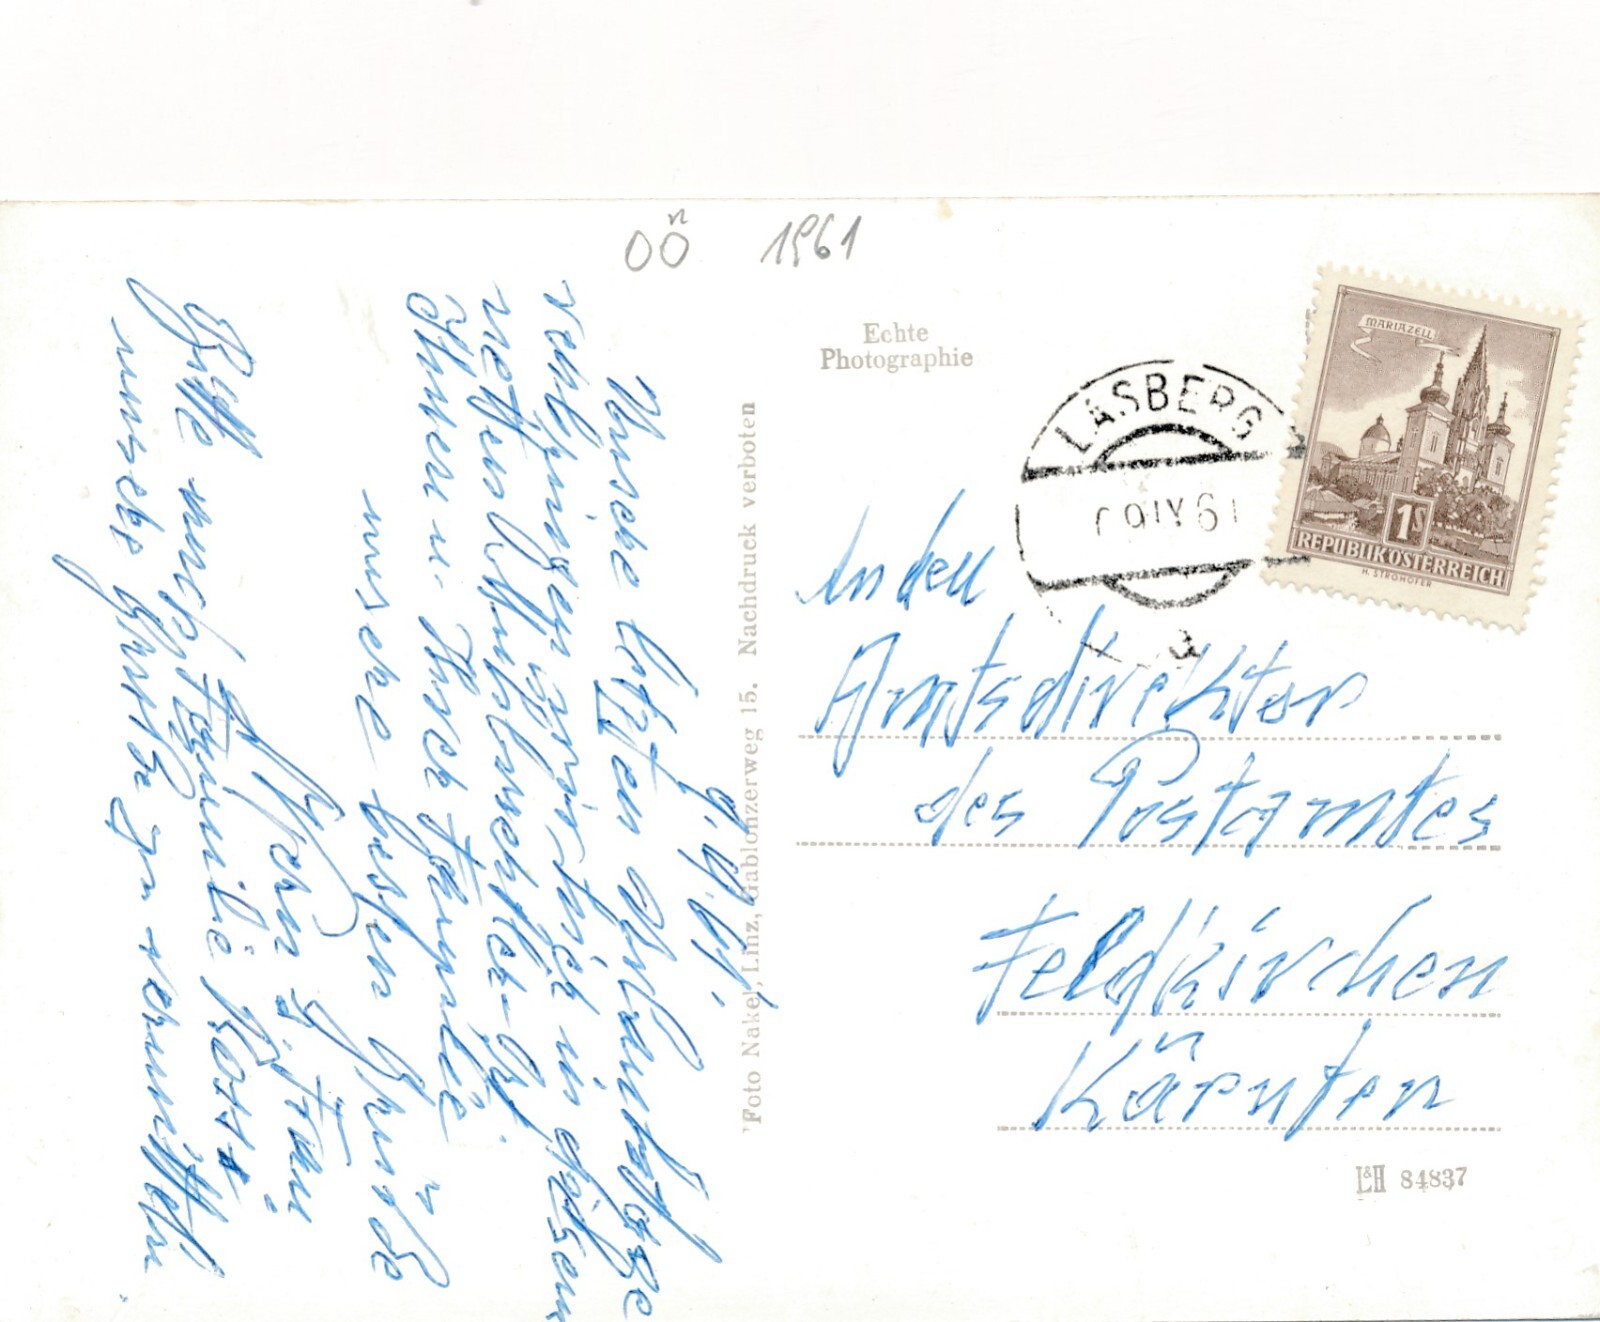 OÖ n 1961
Echte
Photographie
MARIAZELL
1S
REPUBLIK ÖSTERREICH
H. STROHOFER
LASBERG
9 IX 61
a
An den
Amtsdirektor
des Postamtes
Feldkirchen
Kärnten
L&H 84837
Foto Nakel, Linz, Gablonzerweg 15. Nachdruck verboten
9.9.61.
Unsere letzten Urlaubstage
verbringen wir hier in diesem
netten
Ihnen u. Ihrer Familie
unsere besten Grüße
u. Frau
Bitte auch Familie
unsere Grüße zu vermitteln.